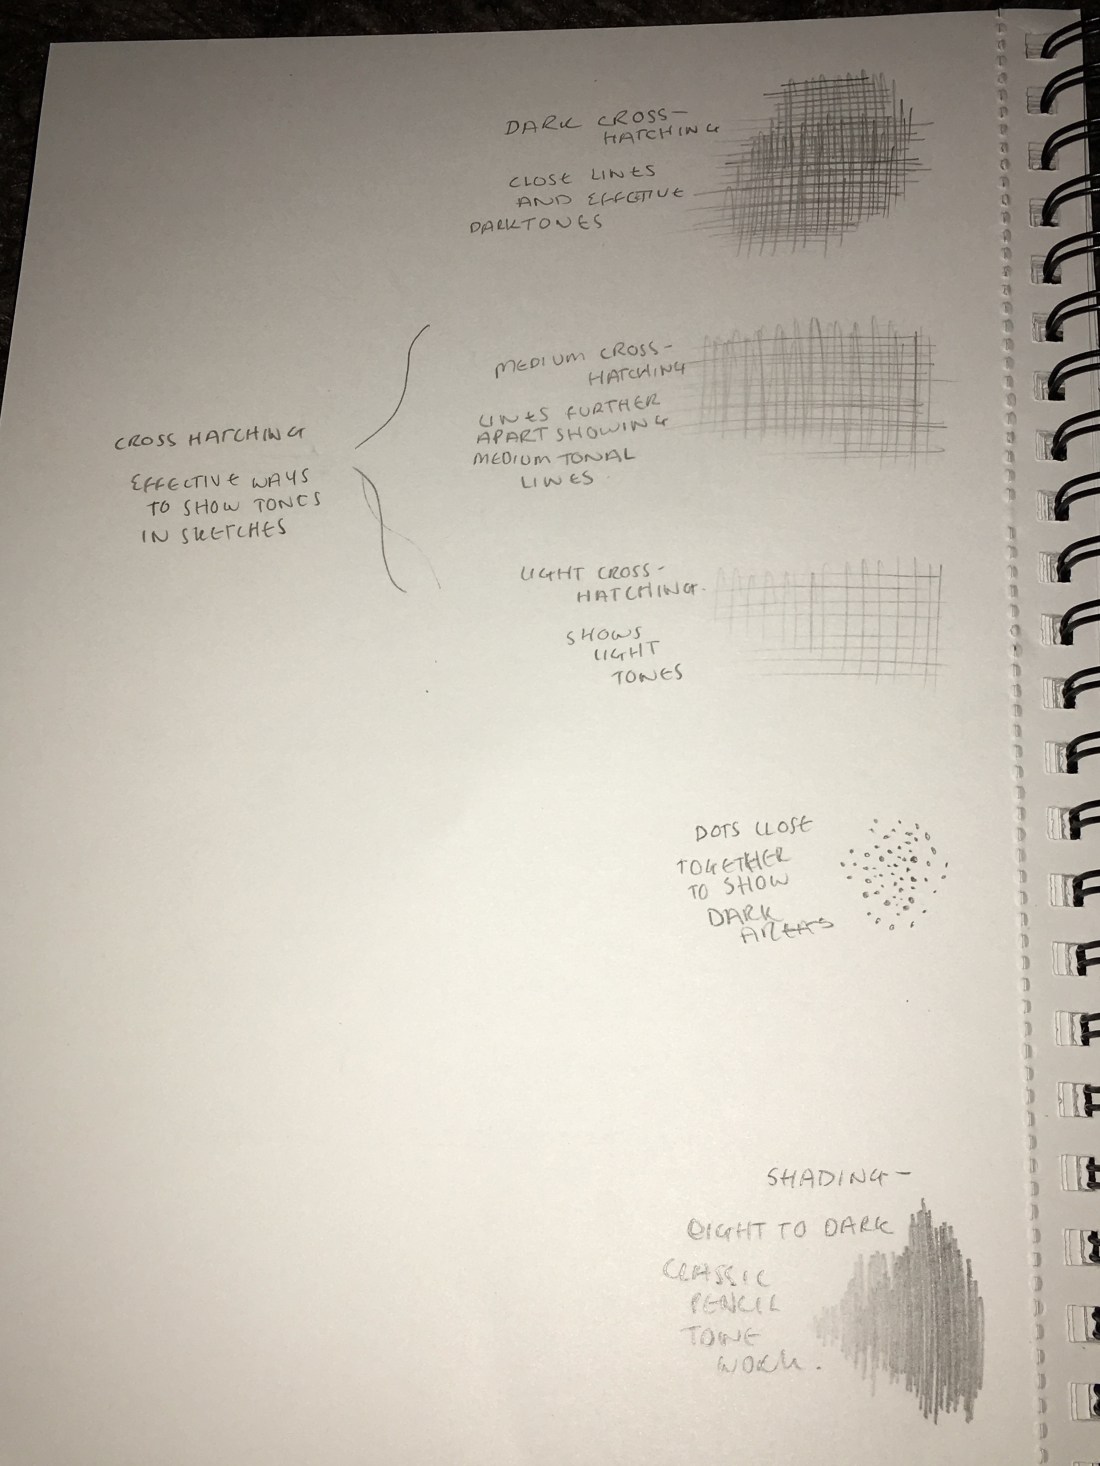 DARK CROSS-
HATCHING
CLOSE LINES
AND EFFECTIVE
DARKTONES
CROSS HATCHING
EFFECTIVE WAYS
TO SHOW TONES
IN SKETCHES
MEDIUM CROSS-
HATCHING
LINES FURTHER
APART SHOWING
MEDIUM TONAL
LINES
LIGHT CROSS-
HATCHING.
SHOWS
LIGHT
TONES
DOTS CLOSE
TOGETHER
TO SHOW
DARK
AREAS
SHADING-
LIGHT TO DARK
CLASSIC
PENCIL
TONE
WORK.